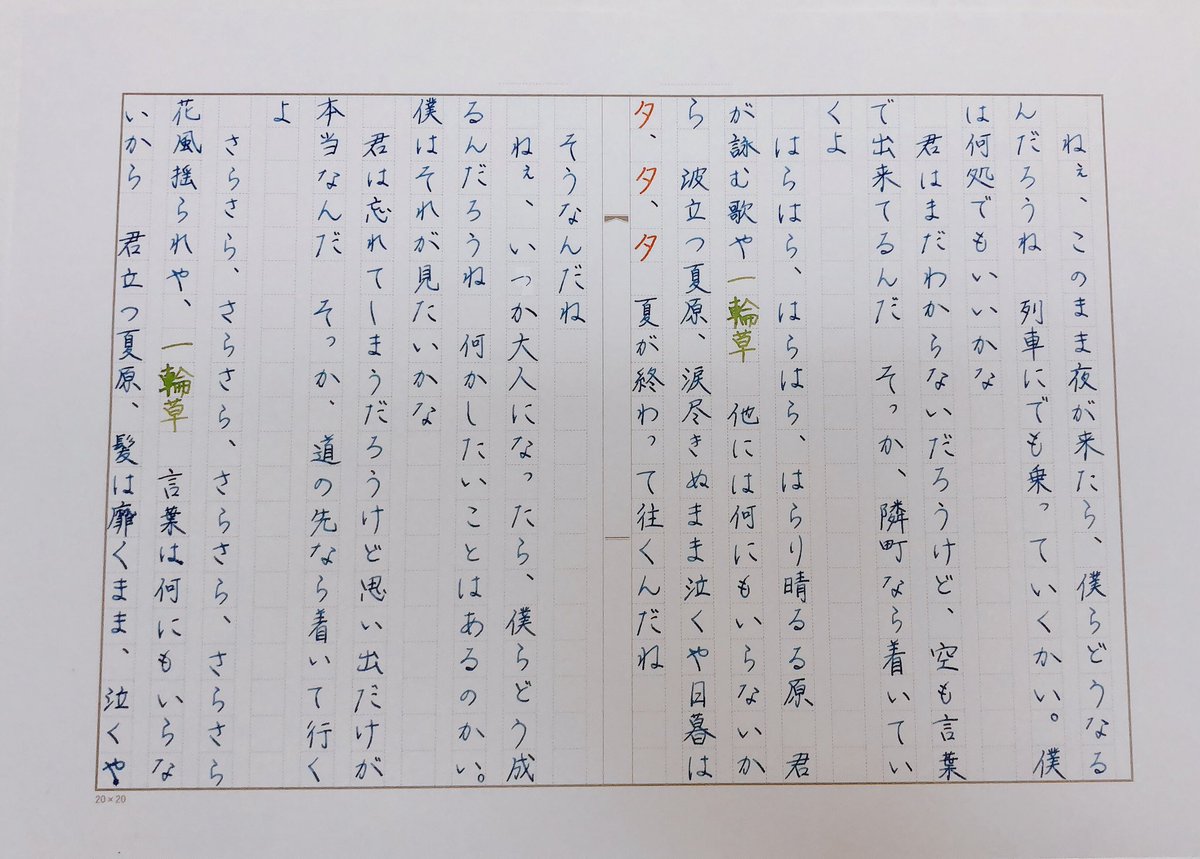 ねぇ、このまま夜が来たら、僕らどうなる
んだろうね　列車にでも乗っていくかい。僕
は何処でもいいかな
君はまだわからないだろうけど、空も言葉
で出来てるんだ　そっか、隣町なら着いてい
くよ
はらはら、はらはら、はらり晴る原　君
が詠む歌や一輪草　他には何にもいらないか
ら　波立つ夏原、涙尽きぬまま泣くや日暮は
夕、夕、夕　夏が終わって往くんだね
そうなんだね
ねぇ、いつか大人になったら、僕らどう成
るんだろうね　何かしたいことはあるのかい。
僕はそれが見たいかな
君は忘れてしまうだろうけど思い出だけが
本当なんだ　そっか、道の先なら着いて行く
よ
さらさら、さらさら、さらさら、さらさら
花風揺られや、一輪草　言葉は何にもいらな
いから　君立つ夏原、髪は靡くまま、泣くや
20×20